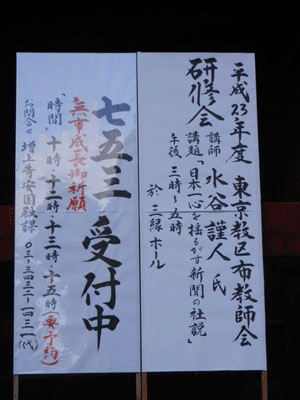 平成23年度 東京教区布教師会
研修会
講師 水谷謹人氏
講題「日本一心を揺るがす新聞の社説」
午後 三時〜五時
於 三縁ホール
七五三 受付中
無事成長御祈願
「時間」十時・十一時・十三時・十五時(要予約)
お問合せ 増上寺安国殿課 〇三-三四三二-一四三一(代)